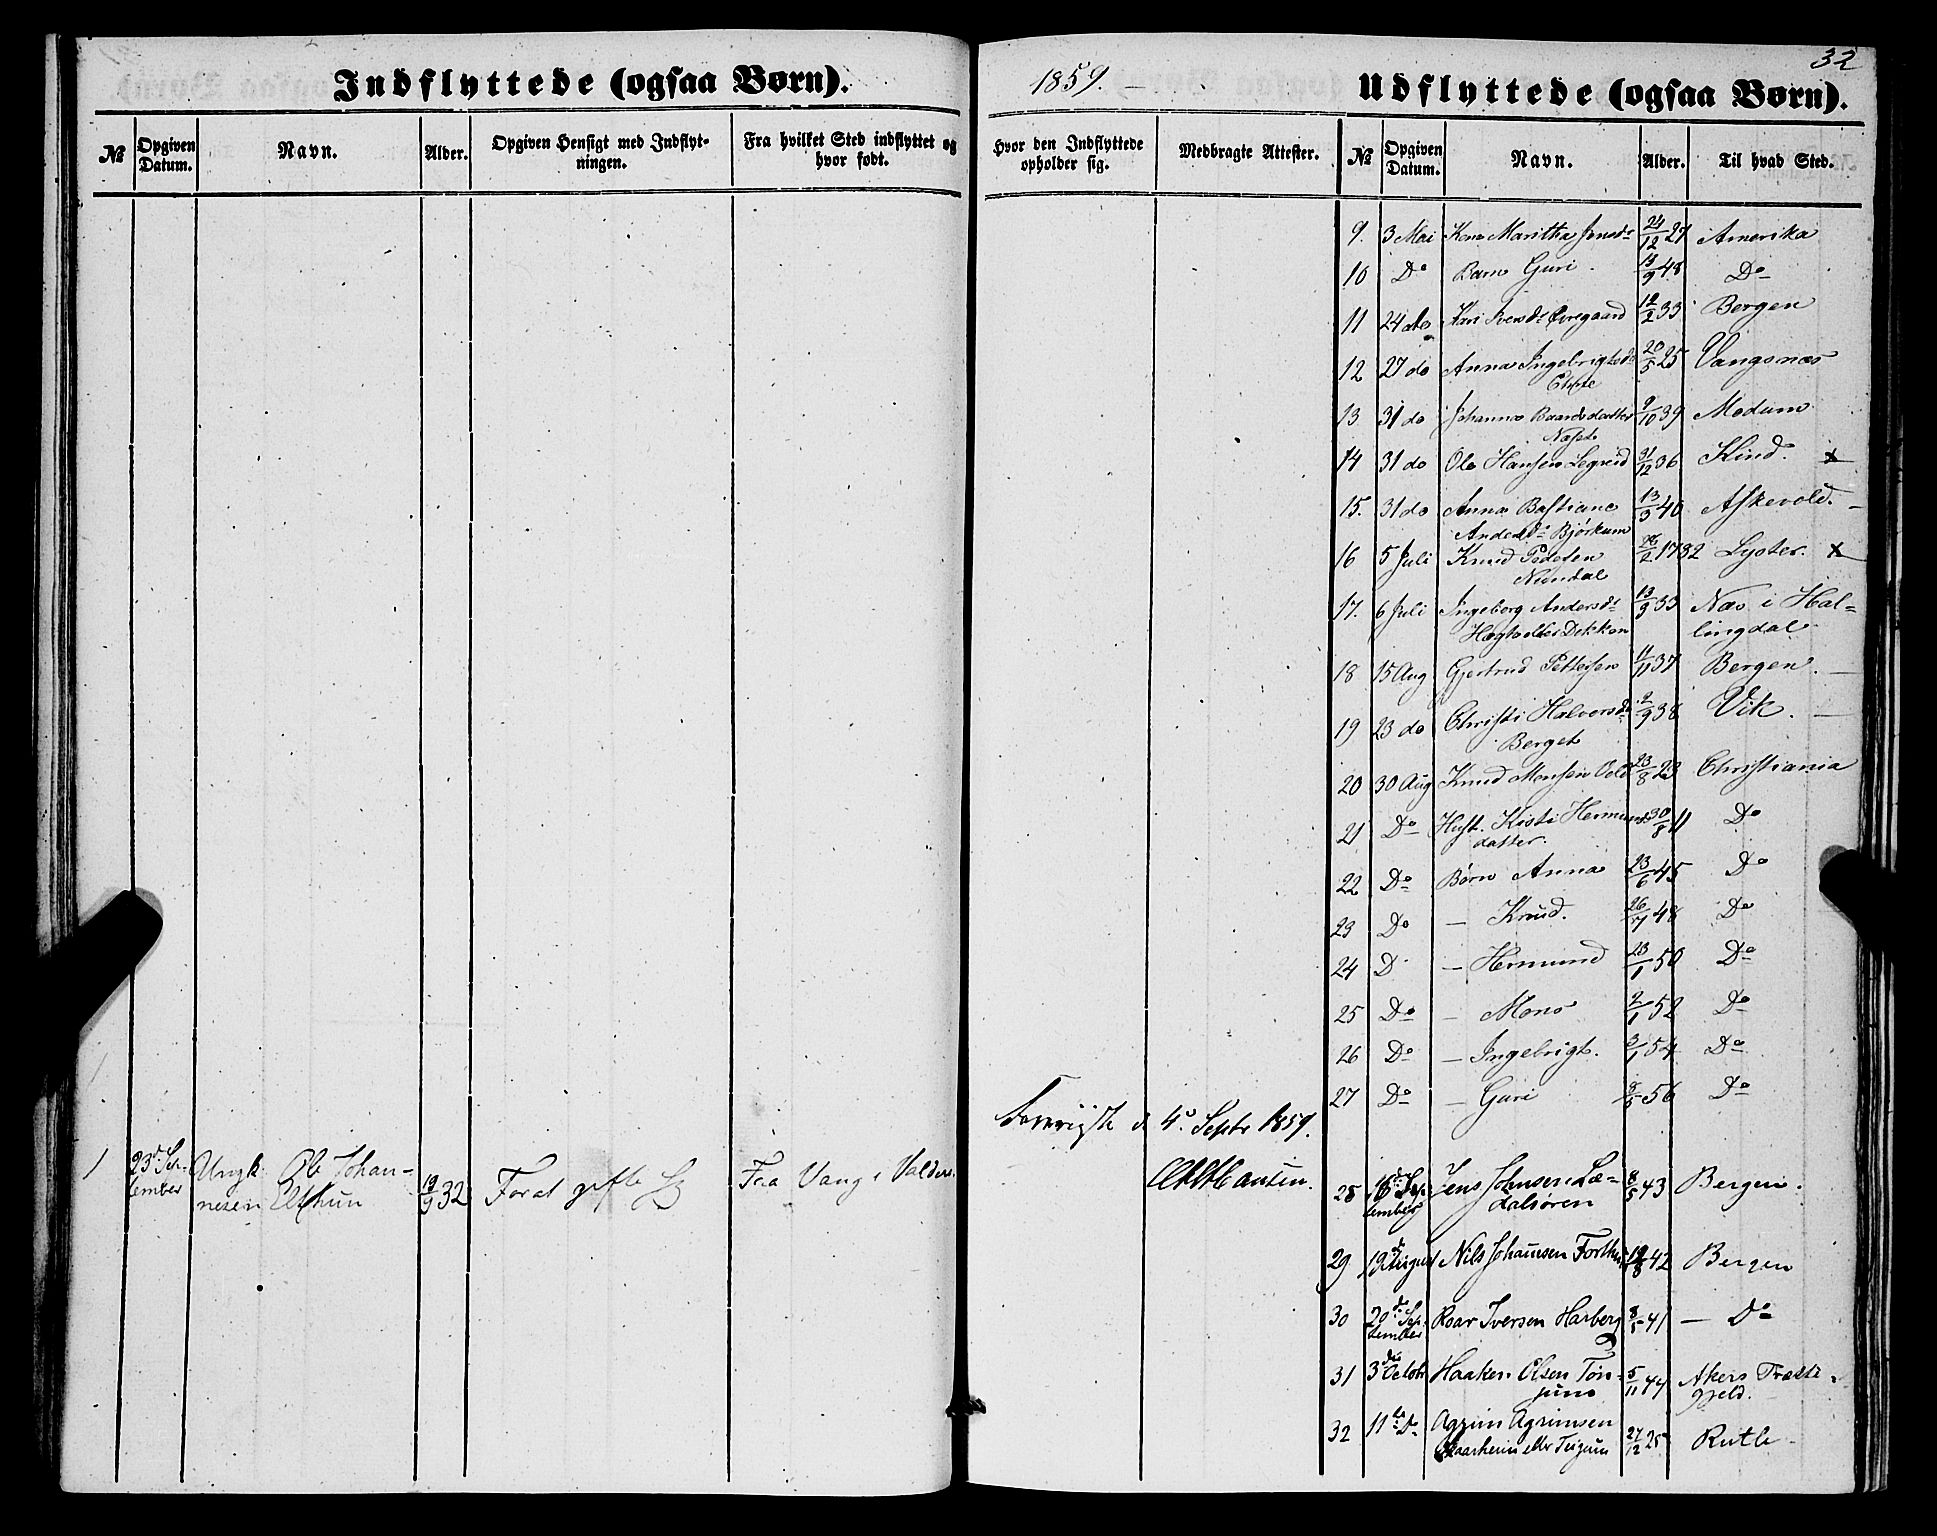 Indflyttede (ogsaa Børn).
1859.
Udflyttede (ogsaa Børn).
32
№ Opgiven Datum. Navn. Alder. Opgiven Hensigt med Indflytningen. Fra hvilket Sted indflyttet og hvor født.
Hvor den Indflyttede opholder sig. Medbragte Attester. № Opgiven Datum. Navn. Alder. Til hvad Sted.
9. 3 Mai Kone Maritha Jensdr 24/12 27 Amerika
10 Do Barn Guri. 13/9 48 Do
11 24 do Kari Iversdr Øvregaard 12/2 33 Bergen
12 27 do Anna Ingebrigtsdr 20/5 25 Vangsnæs
13. 31 do Johanna Baardsdatter 9/10 39 Modum
14 31 do Ole Hansen Legreid 31/12 36 Kind. x
15. 31 do Anna Bastiane 13/3 40 Askevold.
Andersdr Bjørkum
16 5 Juli Knud Pedersen 28/2 1782 Lyster. x
Nundal
17. 6 Juli Ingeborg Andersdr 13/9 33 Næs i Hal=
Hægtvedt Dekken lingdal
18 15 Aug Gjertrud Pettersen 11/11 37 Bergen.
19 23 do Christi Halvorsdr 2/9 38 Vik.
Berget
20 30 Aug Knud Monsen 23/8 23 Christiania
21 Do Hust. Kisti Hermunds 30/8 11 Do
datter.
22 Do Børn Anna 23/6 45 Do
23 Do — Knud. 26/7 48 Do
24 D — Hermund 23/1 50 Do
25 Do — Mons 2/1 52 Do
26 Do — Ingebrigt. 3/1 54 Do
27 Do — Guri 8/5 56 Do
4. Septr 1859.
1 23d September Ungk. Ole Johan- 19/9 32 For at gifte sig Fra Vang i Valders.
nesen Elthun
28 16d September Jens Johnsen Læ- 8/5 43 Bergen.
dalsøren
29 19 August Nils Johannsen Forthun 19/8 42 Bergen
30 20d September Roar Iversen Hasberg 8/5 41 — Do
31 3d Octobr Haaken Olsen Tøn- 5/11 44 Akers Præste-
jum gjeld.
32 11 Do Agrim Agrimsen 27/12 25 Rutle
eller Teigum